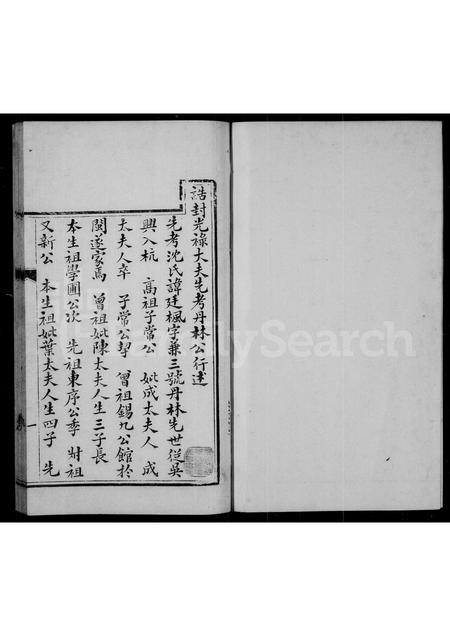 誥封光祿大夫先考丹林公行述
先考沈氏諱廷楓字兼三號丹林先世從吳
興入杭　高祖子常公　妣成太夫人　成
太夫人卒　子常公挈　曾祖錫九公館於
閩遂家焉　曾祖妣陳太夫人生三子長
本生祖學圃公次　先祖東序公季　尌祖
又新公　本生祖妣葉太夫人生四子　先
一
FamilySearch